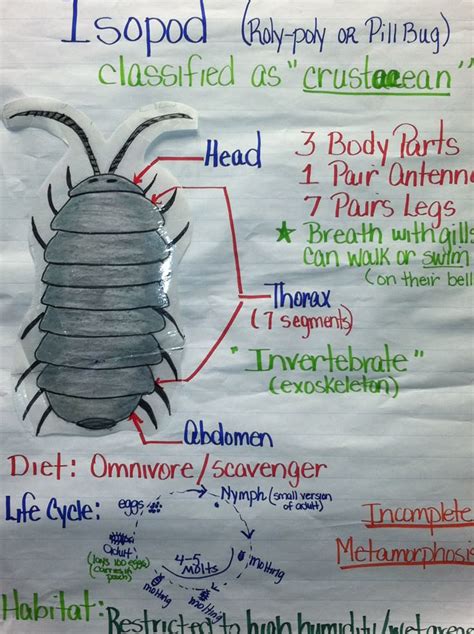 Isopod (Roly-poly or Pill Bug)
classified as "crustacean"
Head
3 Body Parts
1 Pair Antenn
7 Pairs Legs
★ Breath with gills
can walk or swim
(on their bell
Thorax
(7 segments)
"Invertebrate"
(exoskeleton)
Abdomen
Diet: Omnivore/scavenger
Life Cycle:
eggs
Nymph (small version
of adult)
molting
molting
molting
4-5
Molts
adult
(lays 100 eggs)
(carries in
pouch)
Incomplete
Metamorphosis
Habitat: Restricted to high humidity/wet areas